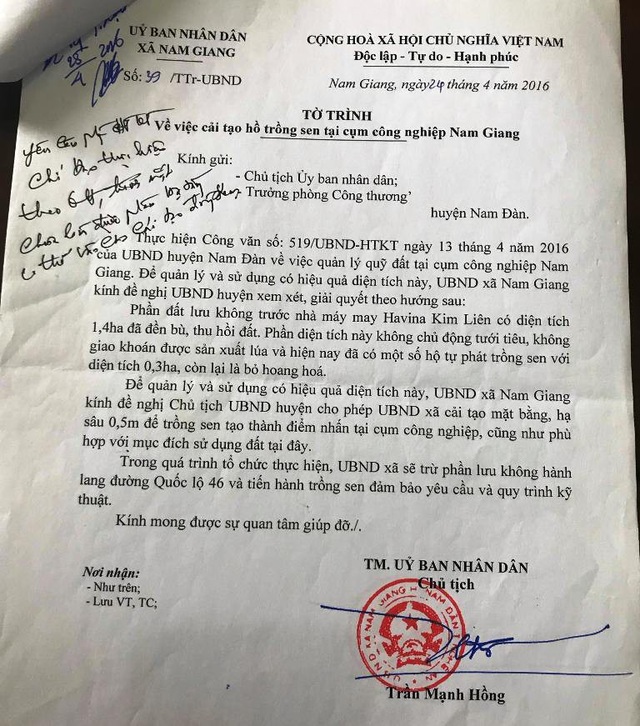 UỶ BAN NHÂN DÂN
XÃ NAM GIANG
Số: 39 /TTr-UBND
CỘNG HOÀ XÃ HỘI CHỦ NGHĨA VIỆT NAM
Độc lập - Tự do - Hạnh phúc
Nam Giang, ngày 24 tháng 4 năm 2016
TỜ TRÌNH
Về việc cải tạo hồ trồng sen tại cụm công nghiệp Nam Giang
Kính gửi:
- Chủ tịch Ủy ban nhân dân;
- Trưởng phòng Công thương
huyện Nam Đàn.
Thực hiện Công văn số: 519/UBND-HTKT ngày 13 tháng 4 năm 2016
của UBND huyện Nam Đàn về việc quản lý quỹ đất tại cụm công nghiệp Nam
Giang. Để quản lý và sử dụng có hiệu quả diện tích này, UBND xã Nam Giang
kính đề nghị UBND huyện xem xét, giải quyết theo hướng sau:
Phần đất lưu không trước nhà máy may Havina Kim Liên có diện tích
1,4ha đã đền bù, thu hồi đất. Phần diện tích này không chủ động tưới tiêu, không
giao khoán được sản xuất lúa và hiện nay đã có một số hộ tự phát trồng sen với
diện tích 0,3ha, còn lại là bỏ hoang hoá.
Để quản lý và sử dụng có hiệu quả diện tích này, UBND xã Nam Giang
kính đề nghị Chủ tịch UBND huyện cho phép UBND xã cải tạo mặt bằng, hạ
sâu 0,5m để trồng sen tạo thành điểm nhấn tại cụm công nghiệp, cũng như phù
hợp với mục đích sử dụng đất tại đây.
Trong quá trình tổ chức thực hiện, UBND xã sẽ trừ phần lưu không hành
lang đường Quốc lộ 46 và tiến hành trồng sen đảm bảo yêu cầu và quy trình kỹ
thuật.
Kính mong được sự quan tâm giúp đỡ./.
Nơi nhận:
- Như trên;
- Lưu VT, TC;
TM. UỶ BAN NHÂN DÂN
Chủ tịch
Trần Mạnh Hồng